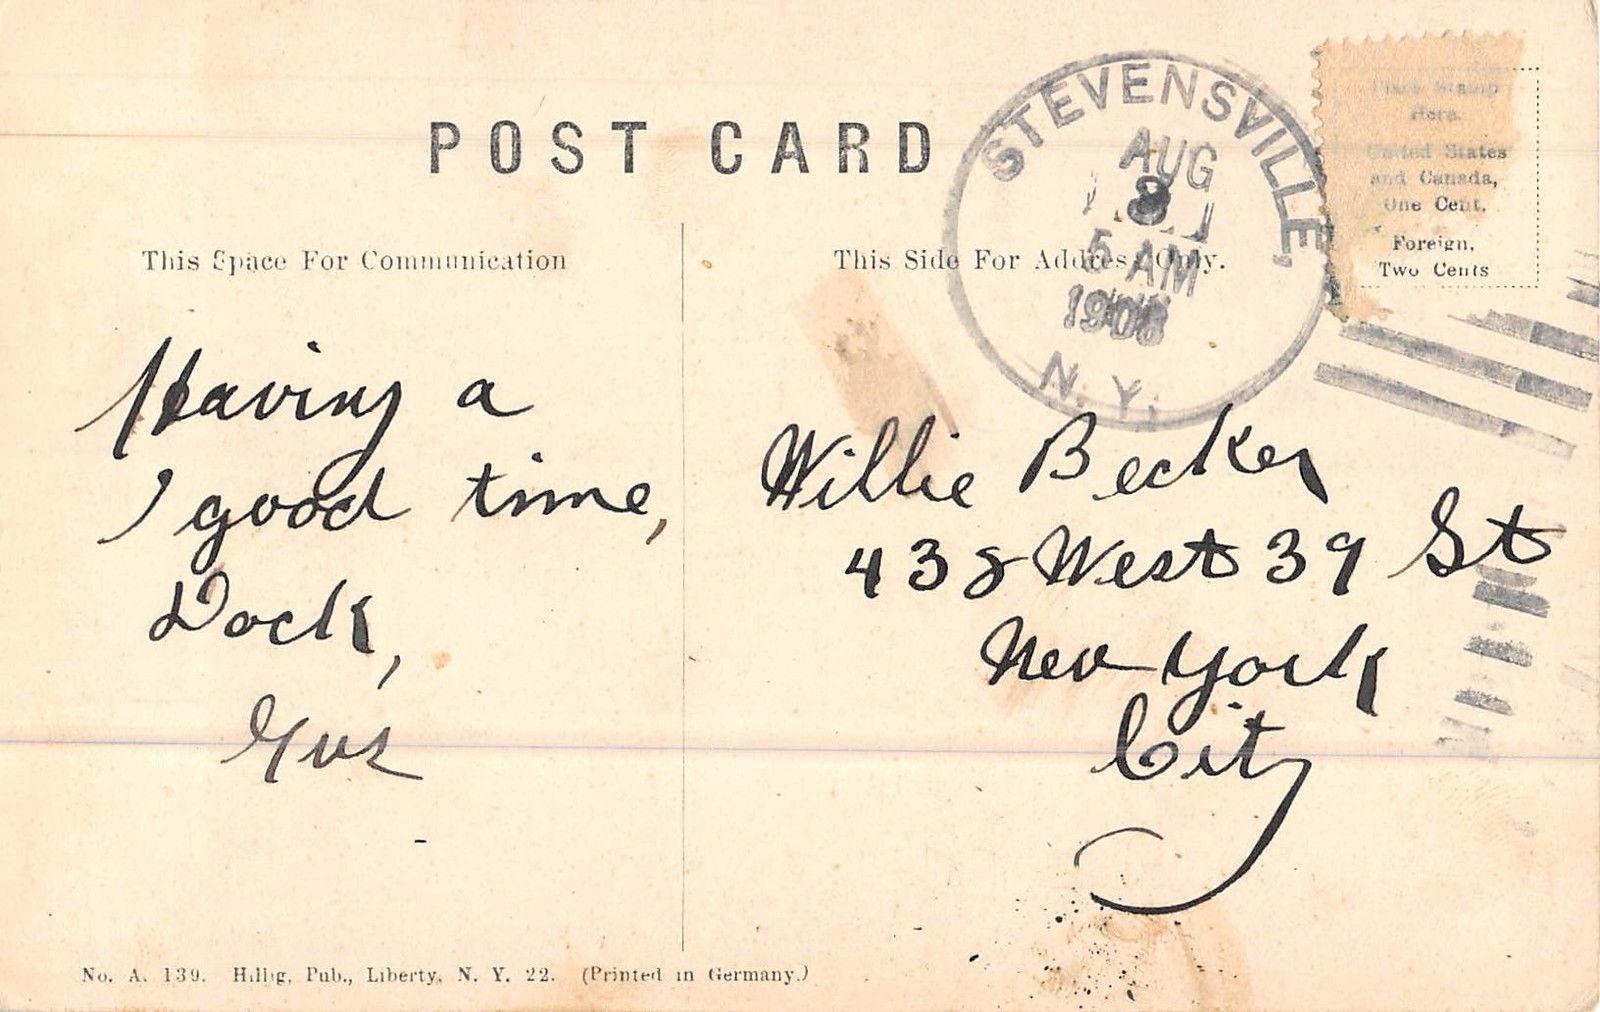 POST CARD
STEVENSVILLE,
AUG
8
5 AM
1908
N. Y.
Place Stamp
Here.
United States
and Canada,
One Cent.
Foreign,
Two Cents
This Space For Communication
This Side For Address Only.
Having a
good time,
Dock,
Gus
Willie Becker
438 West 39 St
New York
City
No. A. 139. Hillig, Pub., Liberty, N. Y. 22. (Printed in Germany.)